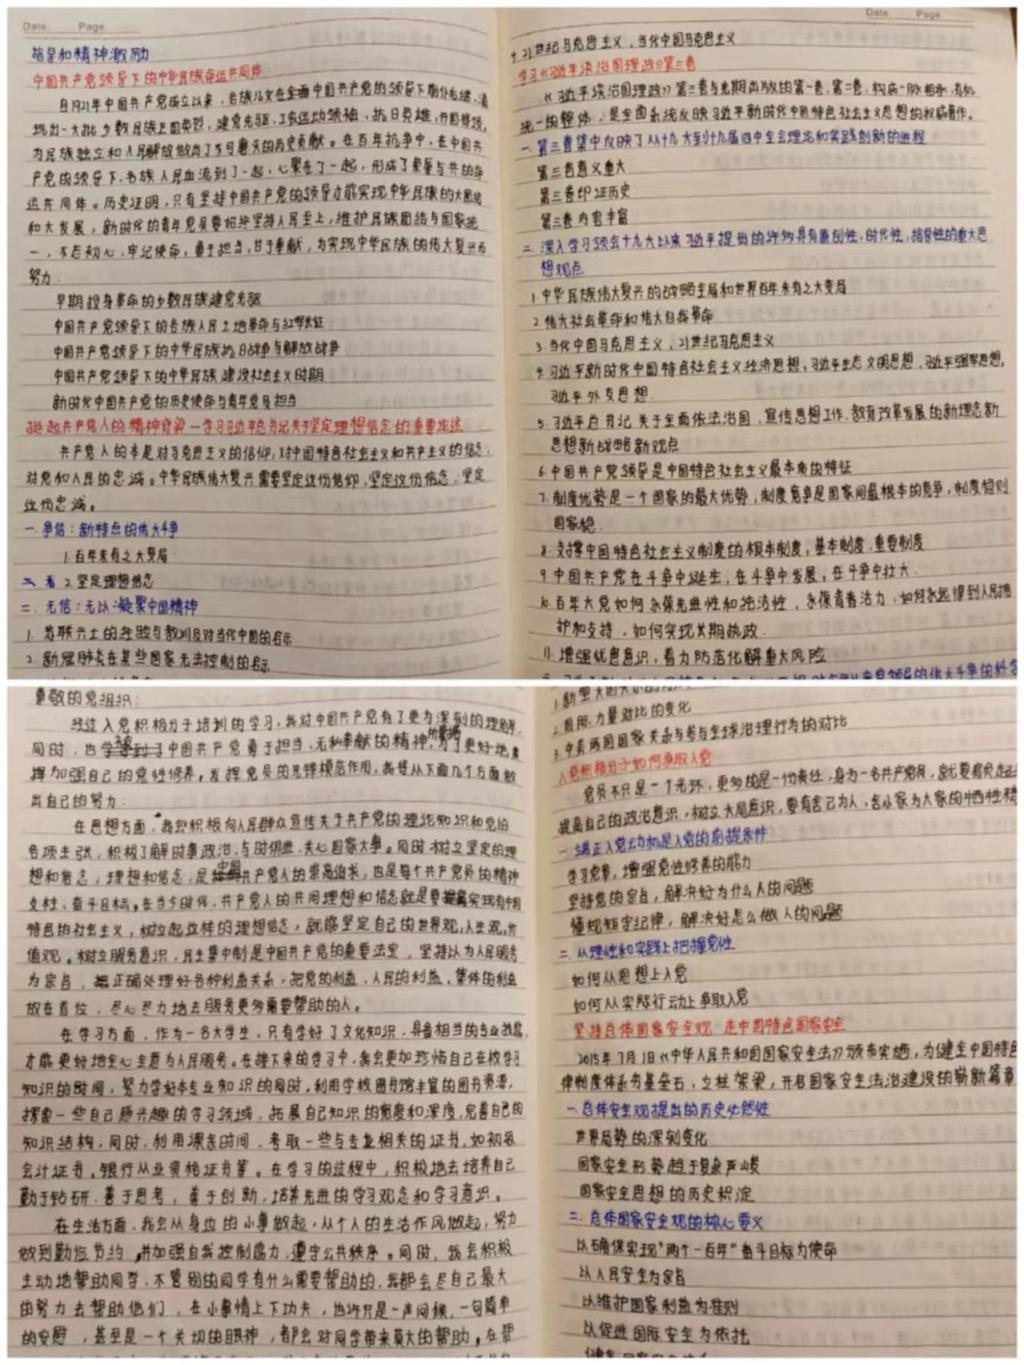 Date: Page:
指导和精神激励
中国共产党领导下的中华民族命运共同体
自1921年中国共产党成立以来，各族儿女在中国共产党的领导下前仆后继，涌
现出一大批少数民族卫国英烈，建党先驱，工农运动领袖，抗日英雄，开国将领，
为民族独立和人民解放做出了不可磨灭的历史贡献。在百年抗争中，在中国共
产党的领导下，各族人民血流到了一起，心聚在了一起，形成了荣辱与共的命
运共同体。历史证明，只有坚持中国共产党的领导才能实现中华民族的大团结
和大发展，新时代的青年党员要始终坚持人民至上，维护民族团结与国家统
一，不忘初心，牢记使命，勇于担当，甘于奉献，为实现中华民族的伟大复兴而
努力.
早期投身革命的少数民族建党先驱
中国共产党领导下的各族人民土地革命与红军长征
中国共产党领导下的中华民族抗日战争与解放战争
中国共产党领导下的中华民族建设社会主义时期
新时代中国共产党的历史使命与青年党员担当
挺起共产党人的精神脊梁—学习习近平总书记关于坚定理想信念的重要论述
共产党人的本是对马克思主义的信仰，对中国特色社会主义和共产主义的信念，
对党和人民的忠诚。中华民族伟大复兴需要坚定这份信仰，坚定这份信念，坚定
这份忠诚。
一.争信：新特点的伟大斗争
1.百年未有之大变局
2.坚定理想信念
二.无信：无以凝聚中国精神
1. 苏联兴亡的经验与教训及对当代中国的启示
2. 新冠肺炎在某些国家无法控制的启示
Date. Page.
4. 21世纪马克思主义，当代中国马克思主义
学习《习近平谈治国理政》第三卷
《习近平谈治国理政》第三卷与先期出版的第一卷，第二卷，构成一脉相承，有机
统一的整体，是全面系统反映习近平新时代中国特色社会主义思想的权威著作。
一.第三卷集中反映了从十九大到十九届四中全会理论和实践创新的进程
第三卷意义重大
第三卷印证历史
第三卷内容丰富
二.深入学习领会十九大以来习近平提出的许多具有原创性，时代性，指导性的重大思
想观点
1.中华民族伟大复兴的战略全局和世界百年未有之大变局
2.伟大社会革命和伟大自我革命
3.当代中国马克思主义，21世纪马克思主义
4.习近平新时代中国特色社会主义经济思想，习近平生态文明思想，习近平强军思想，
习近平外交思想.
5.习近平总书记关于全面依法治国，宣传思想工作，教育改革发展的新理念新
思想新战略新观点
6.中国共产党领导是中国特色社会主义最本质的特征
7.制度优势是一个国家的最大优势，制度竞争是国家间最根本的竞争，制度稳则
国家稳.
8.支撑中国特色社会主义制度的根本制度，基本制度，重要制度
9.中国共产党在斗争中诞生，在斗争中发展，在斗争中壮大.
10.百年大党如何永葆先进性和纯洁性，永葆青春活力，如何永远得到人民拥
护和支持，如何实现长期执政.
11.增强忧患意识，着力防范化解重大风险
尊敬的党组织：
经过入党积极分子培训的学习，我对中国共产党有了更为深刻的理解，
同时，也学习到了中国共产党勇于担当，无私奉献的精神，为了更好地发
挥加强自己的党性修养，发挥党员的先锋模范作用，我将从下面几个方面做
出自己的努力：
在思想方面，我会积极向人民群众宣传关于共产党的理论知识和党的
各项主张，积极了解时事政治，与时俱进，关心国家大事。同时树立坚定的理
想和信念，理想和信念，是中国共产党人的崇高追求，也是每个共产党员的精神
支柱、奋斗目标。在当今时代，共产党人的共同理想和信念就是要实现有中国
特色的社会主义，树立起这样的理想信念，就能坚定自己的世界观，人生观，价
值观。树立服务意识，民主集中制是中国共产党的重要法宝，坚持以为人民服务
为宗旨，能正确处理好各种利益关系，把党的利益、人民的利益、集体的利益
放在首位，尽心尽力地去服务更多需要帮助的人。
在学习方面，作为一名大学生，只有学好了文化知识，具备相当的专业技能，
才能更好地全心全意为人民服务。在接下来的学习中，我会更加珍惜自己在校学习
知识的时间，努力学好本专业知识的同时，利用学校图书馆丰富的图书资源，
探索一些自己感兴趣的学习领域，拓展自己知识的宽度和深度，完善自己的
知识结构，同时，利用课余时间，考取一些与专业相关的证书，如初级
会计证书、银行从业资格证书等。在学习的过程中，积极地去培养自己
勤于钻研、善于思考，善于创新，培养先进的学习观念和学习意识。
在生活方面，我会从身边的小事做起，从个人的生活作风做起，努力
做到勤俭节约，并加强自我控制能力，遵守公共秩序。同时，我会积极
主动地帮助同学，不管别的同学有什么需要帮助的，我都会尽自己最大
的努力去帮助他们，在小事情上下功夫，也许只是一声问候，一句简单
的安慰，甚至是一个关切的眼神，都会对同学带来莫大的帮助。在帮
2.国际力量对比的变化
3.中美两国国家关系与参与全球治理行为的对比
入党积极分子如何争取入党
党员不只是一个光环，更多的是一份责任，身为一名共产党员，就要肩负起
提高自己的政治意识，树立大局意识，要有舍己为人，舍小家为大家的牺牲精
一.端正入党动机是入党的前提条件
学习党章，增强党性修养的能力
坚持党的宗旨，解决好为什么人的问题
懂规矩守纪律，解决好怎么做人的问题
二.从理性和实践上把握党性
如何从思想上入党
如何从实际行动上争取入党
坚持总体国家安全观 走中国特色国家安全
2015年7月1日《中华人民共和国国家安全法》颁布实施，为健全中国特色
律制度体系夯基垒石，立柱架梁，开启国家安全法治建设的崭新篇章
一.总体安全观提出的历史必然性
世界局势的深刻变化
国家安全形势趋于复杂严峻
国家安全思想的历史积淀
二.总体国家安全观的核心要义
以确保实现“两个一百年”奋斗目标为使命
以人民安全为宗旨
以维护国家利益为准则
以促进国际安全为依托